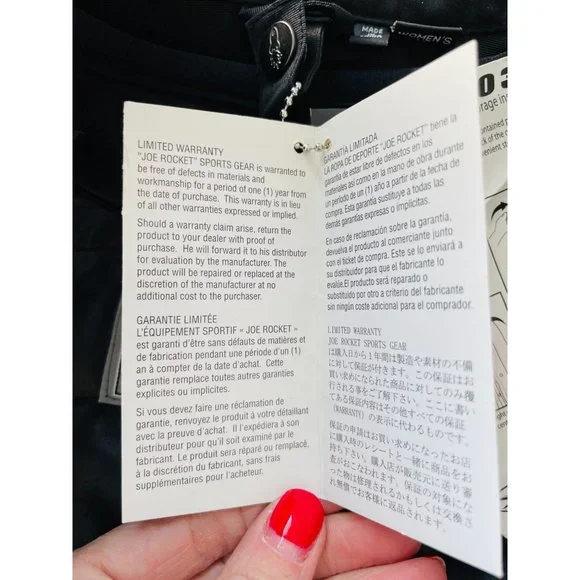 MADE
WOMEN'S
LIMITED WARRANTY
"JOE ROCKET" SPORTS GEAR is warranted to
be free of defects in materials and
workmanship for a period of one (1) year from
the date of purchase. This warranty is in lieu
of all other warranties expressed or implied.
Should a warranty claim arise, return the
product to your dealer with proof of
purchase. He will forward it to his distributor
for evaluation by the manufacturer. The
product will be repaired or replaced at the
discretion of the manufacturer at no
additional cost to the purchaser.
GARANTIE LIMITÉE
L'ÉQUIPEMENT SPORTIF « JOE ROCKET »
est garanti d'être sans défauts de matières et
de fabrication pendant une période d'un (1)
an à compter de la date d'achat. Cette
garantie remplace toutes autres garanties
explicites ou implicites.
Si vous devez faire une réclamation de
garantie, renvoyez le produit à votre détaillant
avec la preuve d'achat. Il l'expédiera à son
distributeur pour qu'il soit examiné par le
fabricant. Le produit sera réparé ou remplacé,
à la discrétion du fabricant, sans frais
supplémentaires pour l'acheteur.
GARANTÍA LIMITADA
LA ROPA DE DEPORTE "JOE ROCKET" tiene la
garantía de estar libre de defectos en los
materiales así como en la mano de obra durante
un período de un (1) año a partir de la fecha de
compra. Esta garantía sustituye a todas las
demás garantías expresas o implícitas.
En caso de reclamación sobre la garantía,
devuelva el producto al comerciante junto
con el ticket de compra. Este se lo enviará a
su distribuidor para que el fabricante lo
evalúe. El producto será reparado o
substituido por otro a criterio del fabricante
sin ningún coste adicional para el comprador.
LIMITED WARRANTY
JOE ROCKET SPORTS GEAR
は購入日から1年間は製造や素材の不備
に対して保証が付きます。この保証はお
買い求めになられた商品に対してのみ履
行される事をご了解下さい。ここに書い
てある保証内容はその他すべての保証
(WARRANTY) の表示に代わるものです。
保証の申請はお買い求めになったお店
に購入時のレシートと一緒に商品をお
持ち下さい。購入店が販売元に送り審
査がおこなわれます。保証の対象にな
った物は修理されるかもしくは交換さ
れ無償でお客様に返品されます。